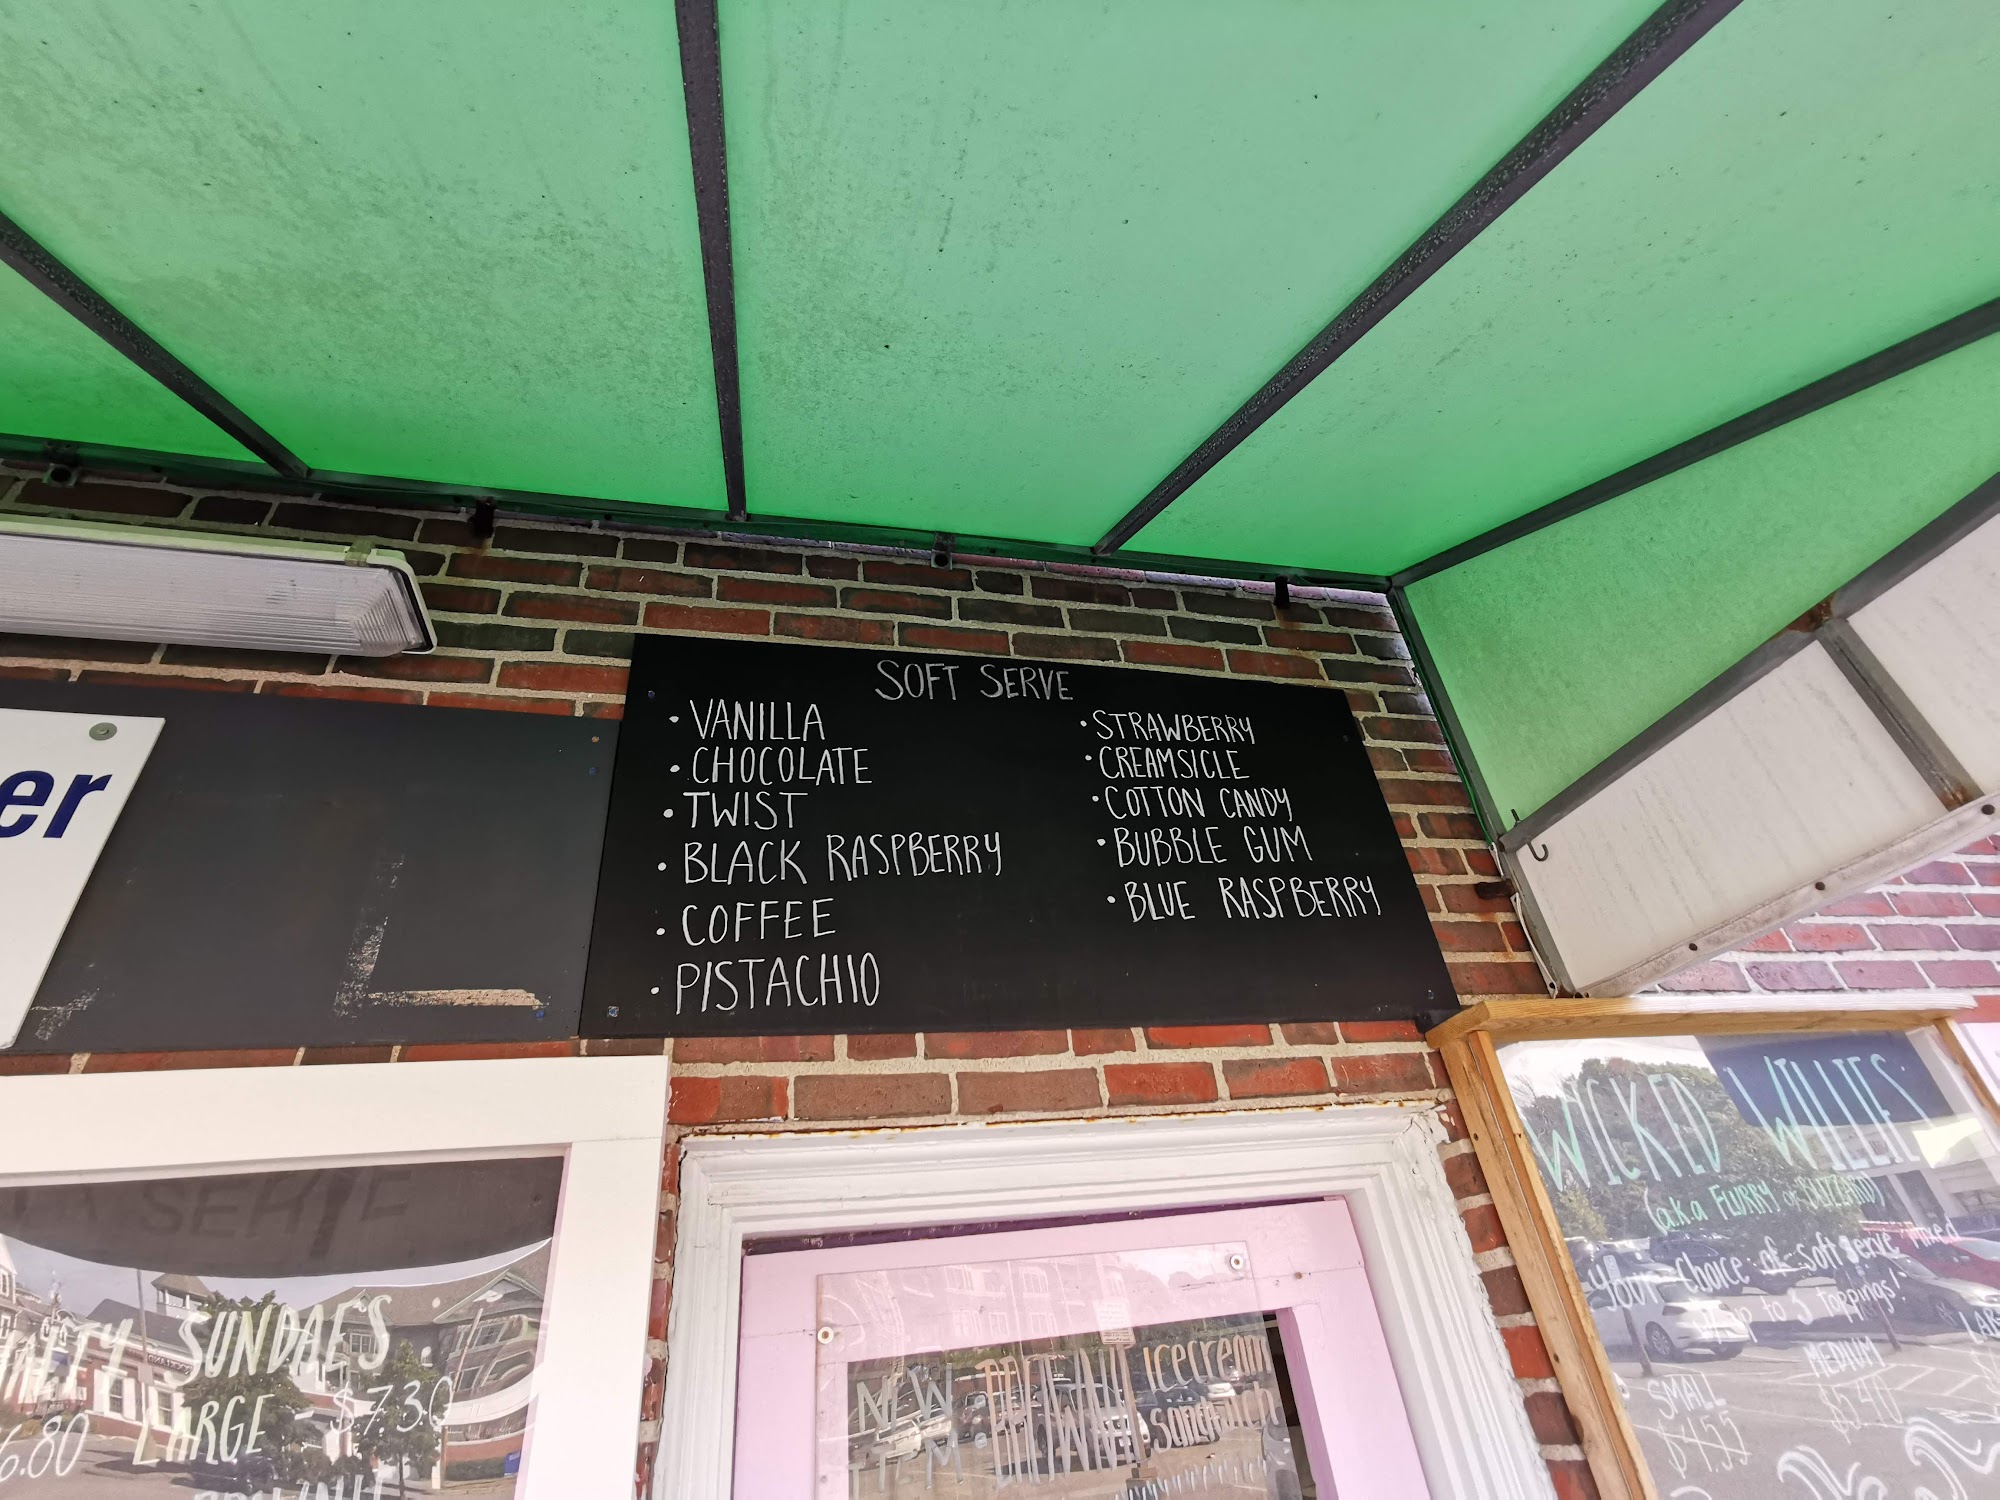 SOFT SERVE
• VANILLA
• CHOCOLATE
• TWIST
• BLACK RASPBERRY
• COFFEE
• PISTACHIO
• STRAWBERRY
• CREAMSICLE
• COTTON CANDY
• BUBBLE GUM
• BLUE RASPBERRY
er
SUNDAES
6.80 LARGE - $7.30
NEW icecream
ITEM sandwich
WICKED WILLIES
(a.k.a FLURRY or BLIZZARD)
Your choice of soft serve mixed
up to 3 toppings!
SMALL
$4.55
MEDIUM
$5.40